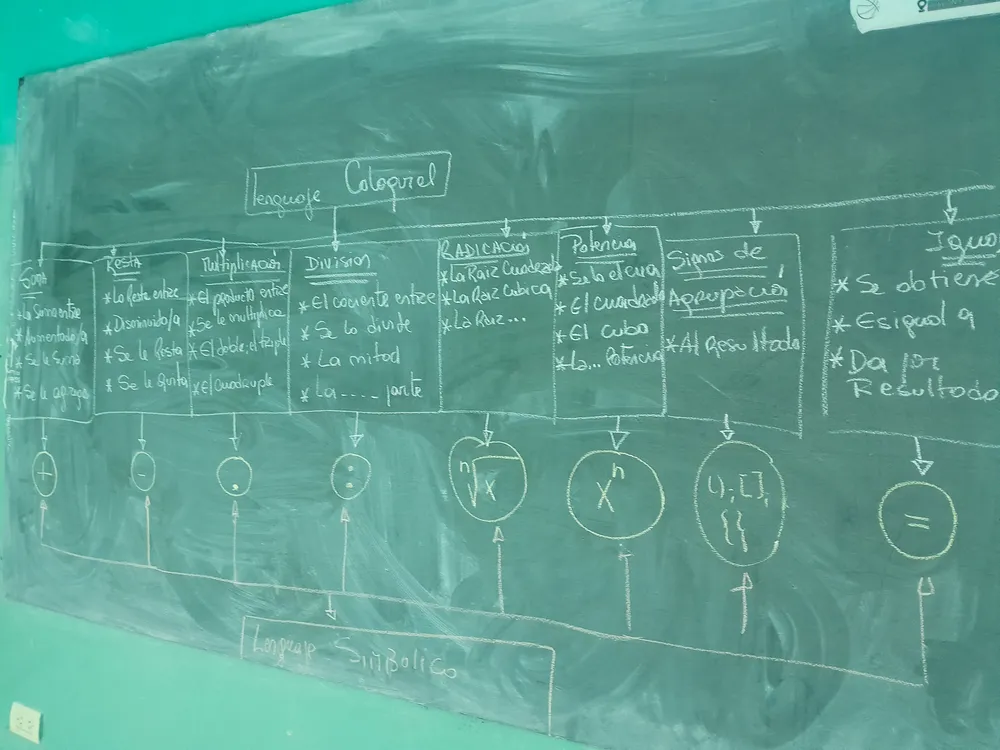 Lenguaje Coloquial
Suma
* La Suma entre
* Aumentado/a
* Se le Suma
* Se le agrega
Resta
* La Resta entre
* Disminuido/a
* Se le Resta
* Se le Quita
Multiplicación
* El producto entre
* Se le multiplica
* El doble, el triple
* El Cuadruple
División
* El cociente entre
* Se lo divide
* La mitad
* La .... parte
RADICACIÓN
* La Raiz Cuadrada
* La Raiz Cubica
* La Raiz ...
Potencia
* Se lo el cua
* El cuadrado
* El cubo
* La... Potencia
Signos de
Agrupación
* Al Resultado
Igua
* Se obtiene
* Es igual a
* Da por
Resultado
+
-
.
:
n√x
Xⁿ
( ), [ ],
{ }
=
Lenguaje Simbolico